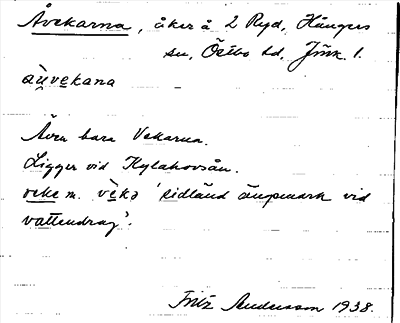 Åvekarna, åker å 2 Ryd, Kångers
sn, Östbo hd, Jönk. l.
åu̯vekana
Även bara Vekarna.
Ligger vid Kylahovsån.
veke m. vèkə 'sidländ ängsmark vid
vattendrag'.
Fritz Andersson 1938.